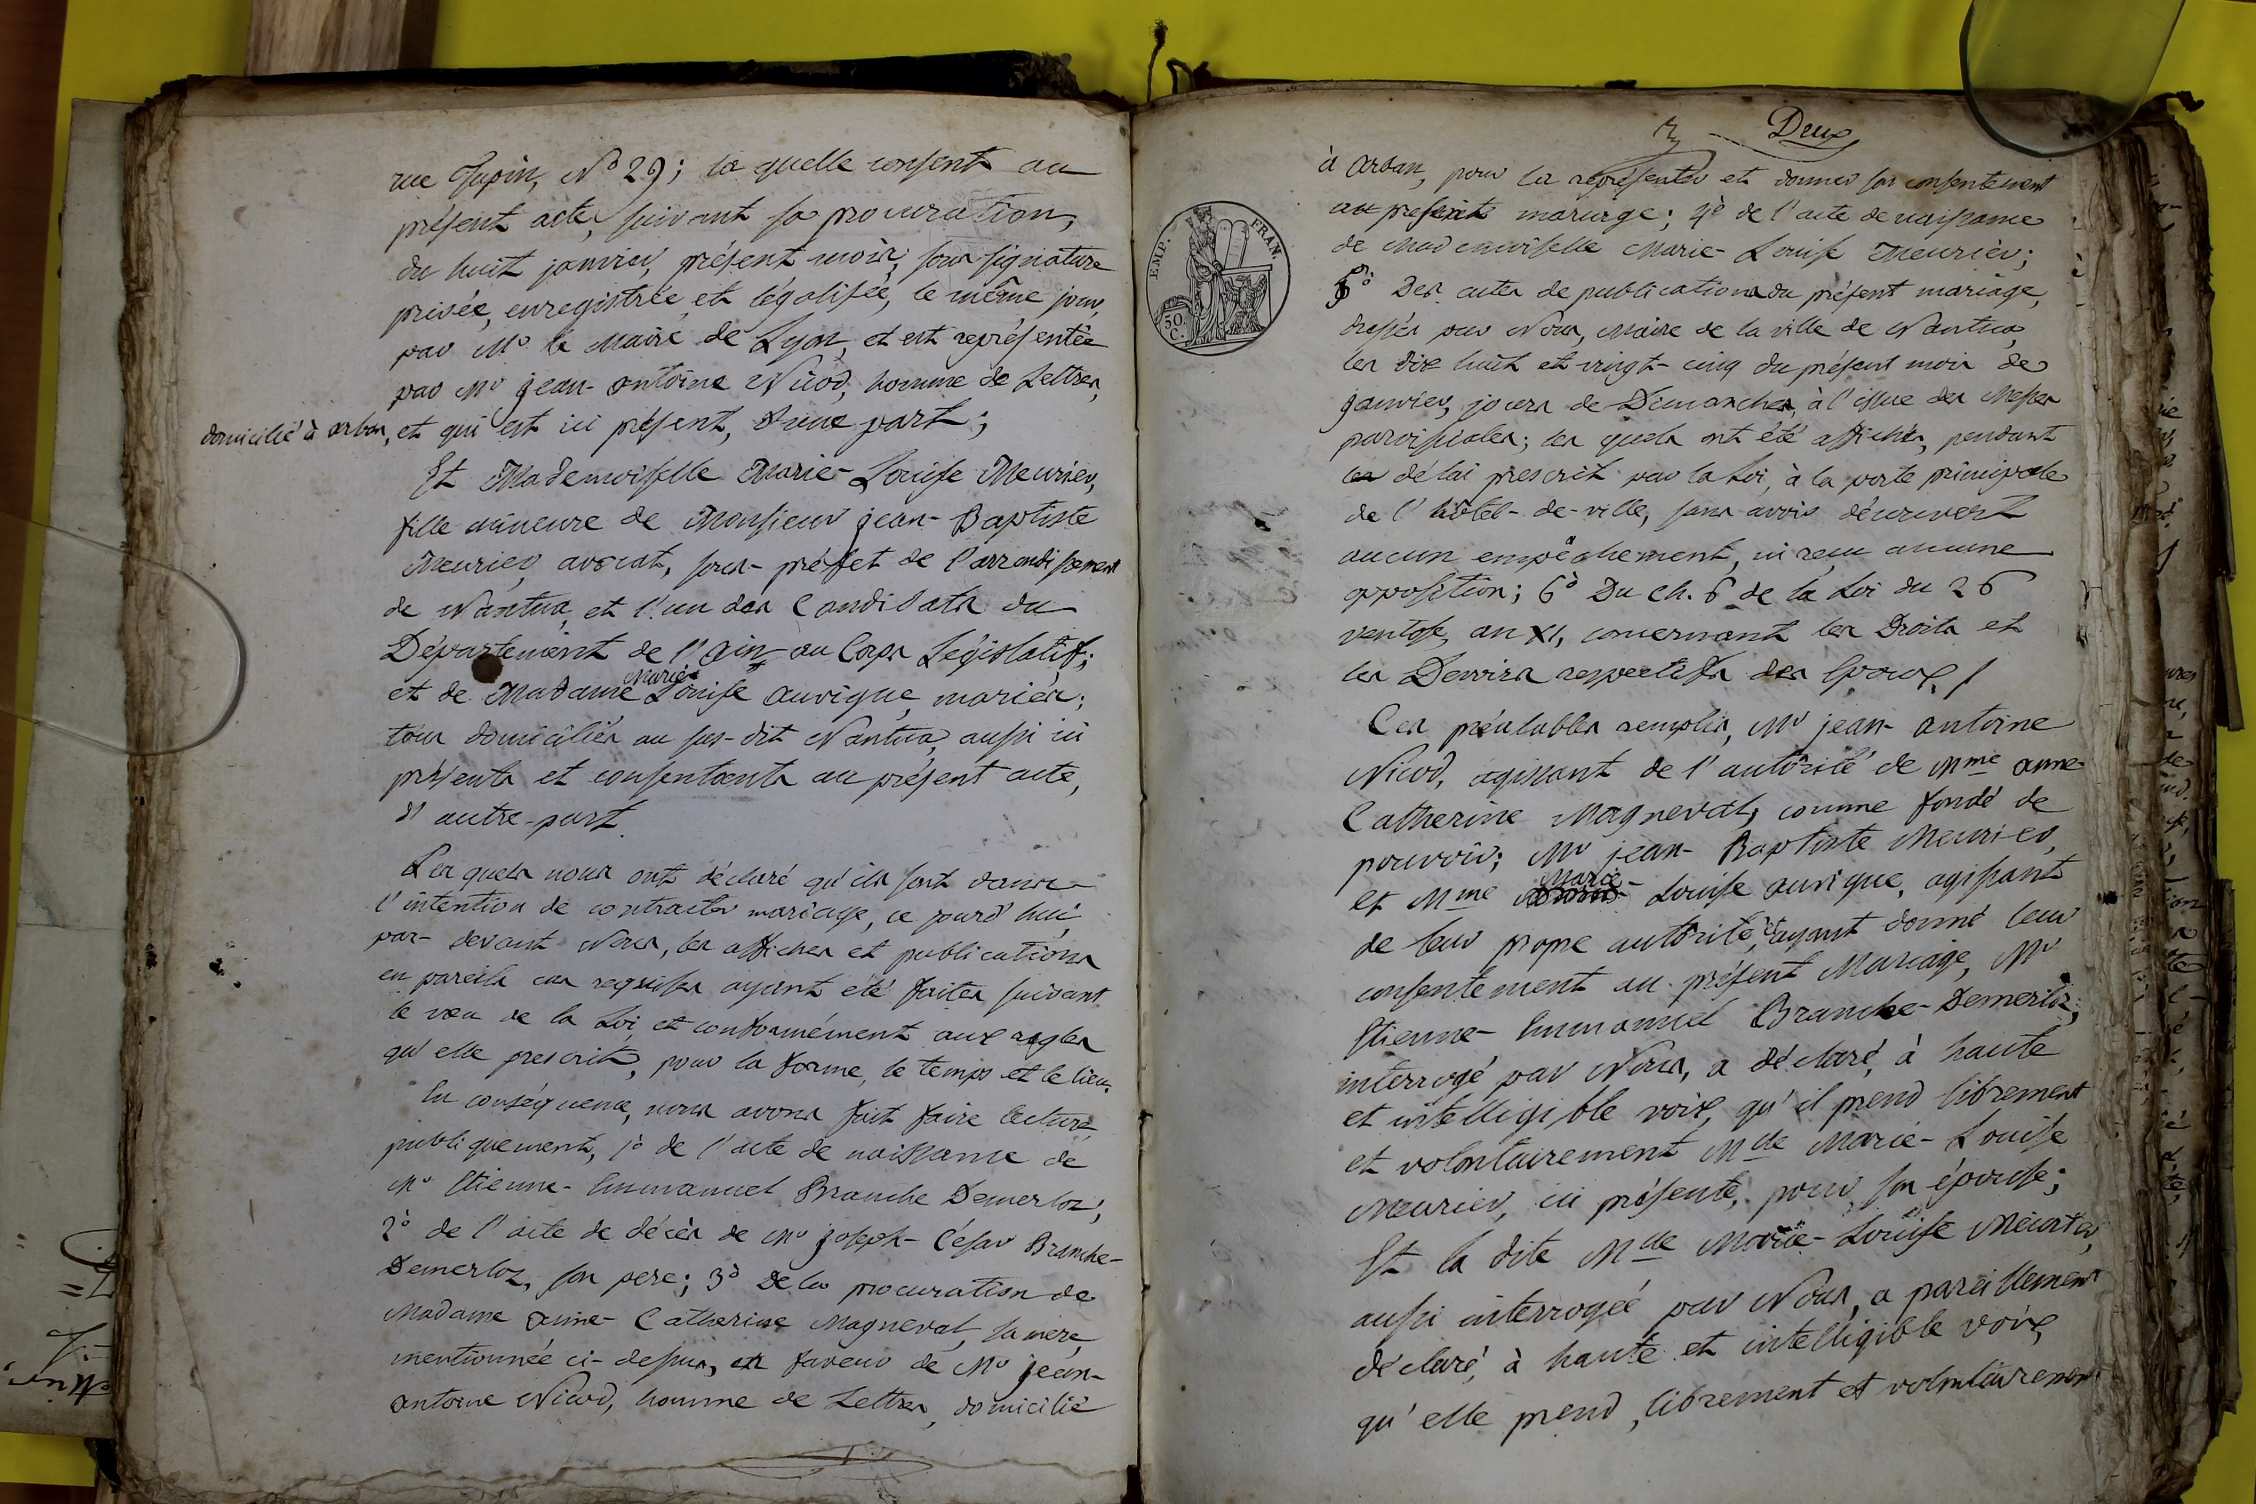 rue Tupin, N° 29; la quelle consent au
présent acte, suivant sa procuration,
du huit janvier, présent mois, sous signature
privée, enregistrée et légalisée, le même jour,
par Mr le Maire de Lyon, et est représentée
par Mr jean-antoine Nicod, homme de Lettres,
domicilié à arban, et qui est ici présent, d'une part;
Et Mademoiselle Marie-Louise Meurier,
fille mineure de Monsieur jean-Baptiste
Meurier, avocat, sous-préfet de l'arrondissement
de Nantua, et l'un des Candidats du
Département de l'Ain au Corps Législatif;
et de Madame Marie Louise auvique, mariés;
tous domiciliés au sus-dit Nantua, aussi ici
présents et consentants au présent acte,
d'autre-part.
Les quels nous ont déclaré qu'ils sont dans
l'intention de contracter mariage, ce jourd'hui,
par-devant Nous, les affiches et publications
en pareils cas requises ayant été faites suivant
le vœu de la Loi, et conformément aux regles
qu'elle prescrit, pour la forme, le temps et le lieu.
En conséquence, nous avons fait faire lecture,
publiquement, 1° de l'acte de naissance de
Mr Etienne-Emmanuel Branche Demerloz;
2° de l'acte de décès de Mr joseph-César Branche-
Demerloz, son pere; 3° De la procuration de
Madame anne-Catherine Magneval, sa mere,
mentionnée ci-dessus, en faveur de Mr jean-
antoine Nicod, homme de Lettres, domicilié
Deux
à arban, pour la représenter et donner son consentement
au présent mariage; 4° de l'acte de naissance
de Mademoiselle Marie-Louise Meurier;
EMP. FRAN.
50 C.
5° Des actes de publications du présent mariage,
dressés par Nous, Maire de la ville de Nantua,
les dix huit et vingt-cinq du présent mois de
janvier, jours de Dimanches, à l'issue des Messes
paroissiales; les quels ont été affichés, pendant
le délai prescrit par la Loi, à la porte principale
de l'hôtel-de-ville, sans avoir découvert
aucun empêchement, ni reçu aucune
opposition; 6° Du Ch. 6 de la Loi du 26
ventose, an XI, concernant les Droits et
les Devoirs respectifs des Epoux /
Ces préalables remplis, Mr jean-antoine
Nicod, agissant de l'autorité de Mme anne-
Catherine Magneval, comme fondé de
pouvoir; Mr jean-Baptiste Meurier,
et Mme Marie-Louise auvique, agissant
de leur propre autorité, et ayant donné leur
consentement au présent Mariage, Mr
Etienne-Emmanuel Branche-Demerloz;
interrogé par Nous, a déclaré, à haute
et intelligible voix, qu'il prend librement
et volontairement Mlle Marie-Louise
Meurier, ici présente, pour son épouse;
Et la dite Mlle Marie-Louise Meurier,
aussi interrogée par Nous, a pareillement
déclaré, à haute et intelligible voix,
qu'elle prend, librement et volontairement